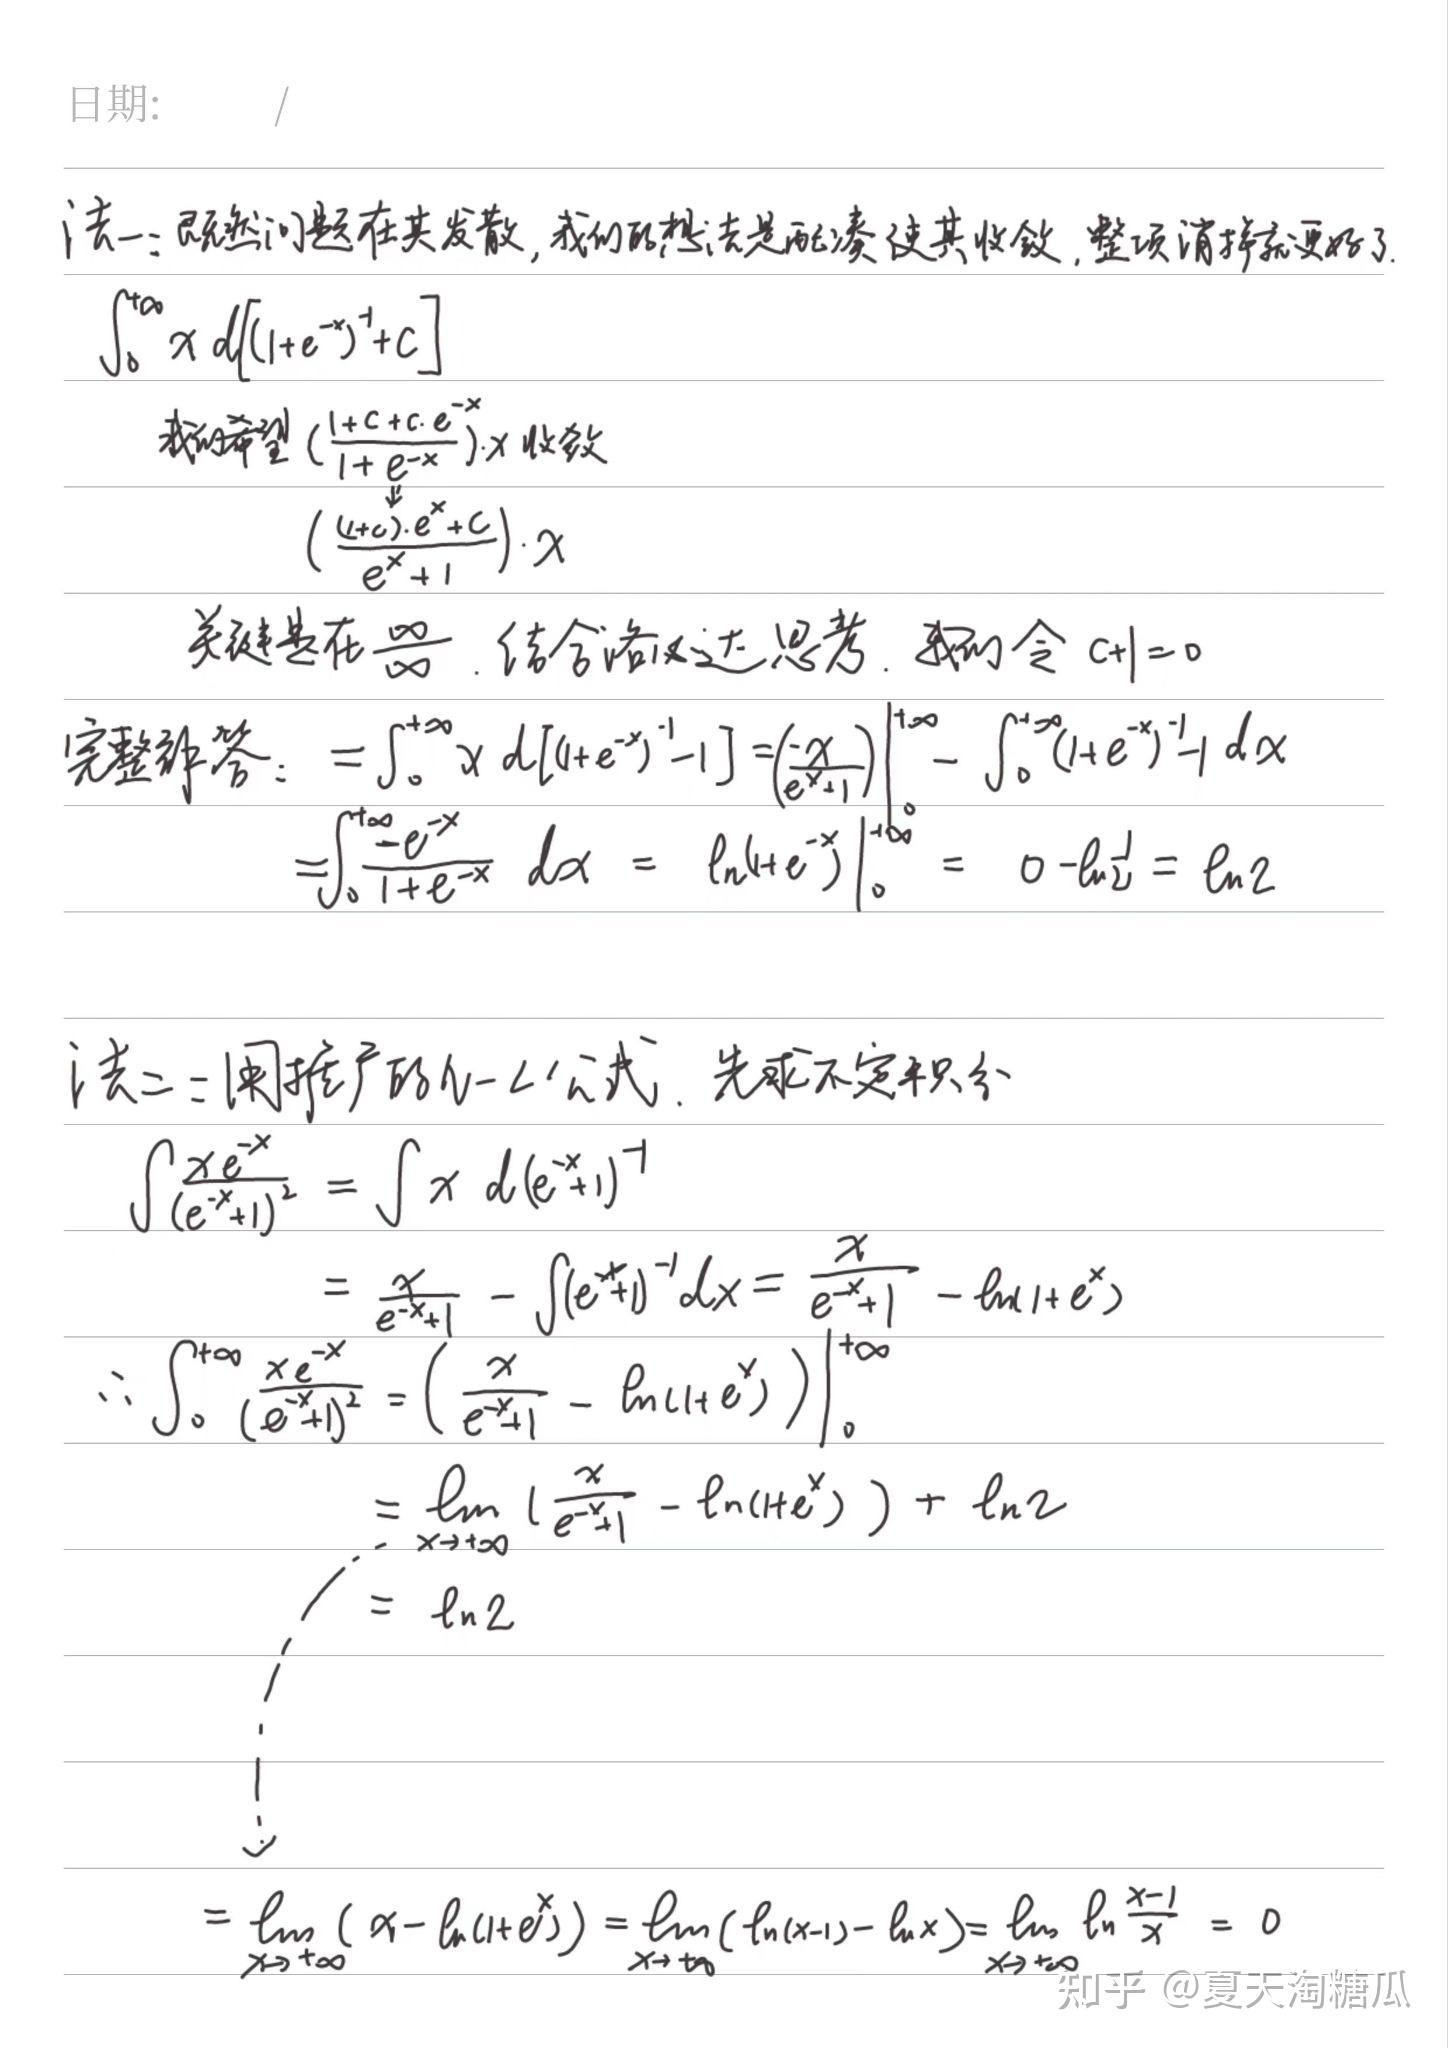 日期: /
法一：既然问题在其发散，我们的想法是配凑使其收敛，整项消掉就更好了.
∫₀^{+∞} x d[(1+e^{-x})^{-1}+C]
我们希望 (\frac{1+C+C·e^{-x}}{1+e^{-x}})·x 收敛
⇓
(\frac{(1+C)·e^x+C}{e^x+1})·x
关键是在 \frac{∞}{∞}. 结合洛必达思考. 我们令 C+1=0
完整解答： =∫₀^{+∞} x d[(1+e^{-x})^{-1}-1] = (\frac{-x}{e^x+1})|₀^{+∞} - ∫₀^{+∞} (1+e^{-x})^{-1}-1 dx
=∫₀^{+∞} \frac{-e^{-x}}{1+e^{-x}} dx = ln(1+e^{-x})|₀^{+∞} = 0-ln\frac{1}{2} = ln2
法二：用推广的N-L公式. 先求不定积分
∫\frac{xe^{-x}}{(e^{-x}+1)^2} = ∫ x d(e^{-x}+1)^{-1}
= \frac{x}{e^{-x}+1} - ∫(e^{-x}+1)^{-1}dx = \frac{x}{e^{-x}+1} - ln(1+e^x)
∴ ∫₀^{+∞} \frac{xe^{-x}}{(e^{-x}+1)^2} = (\frac{x}{e^{-x}+1} - ln(1+e^x))|₀^{+∞}
= lim_{x→+∞} (\frac{x}{e^{-x}+1} - ln(1+e^x)) + ln2
= ln2
= lim_{x→+∞} (x-ln(1+e^x)) = lim_{x→+∞} (ln(x-1)-lnx) = lim_{x→+∞} ln\frac{x-1}{x} = 0
知乎 @夏天淘糖瓜